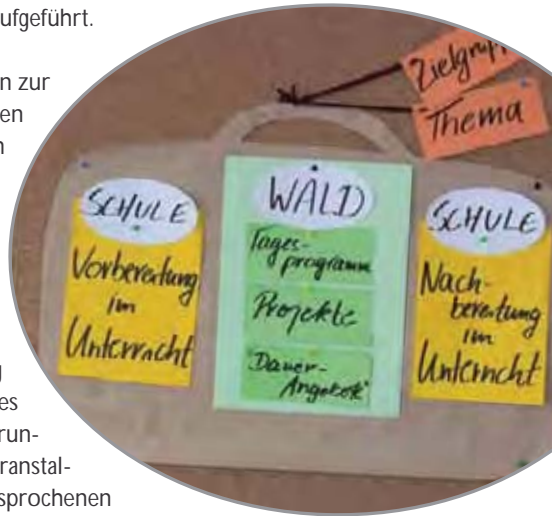 ufgeführt.
n zur
en
n
g
es
run-
ranstal-
sprochenen
Zielgrupp
Thema
SCHULE
Vorbereitung
im
Unterricht
WALD
Tages-
programm
Projekte
Dauer-
Angebote
SCHULE
Nach-
bereitung
im
Unterricht